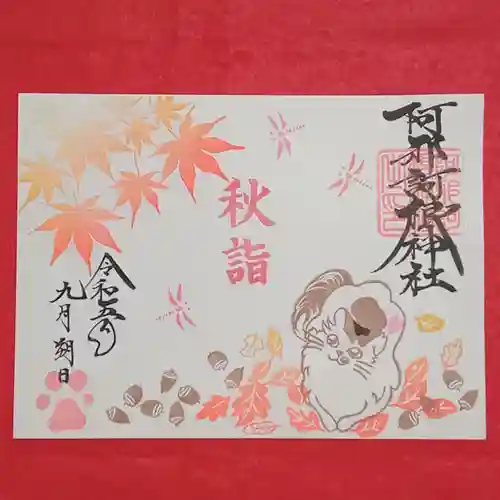 阿邪訶根神社
秋詣
令和五年
九月朔日